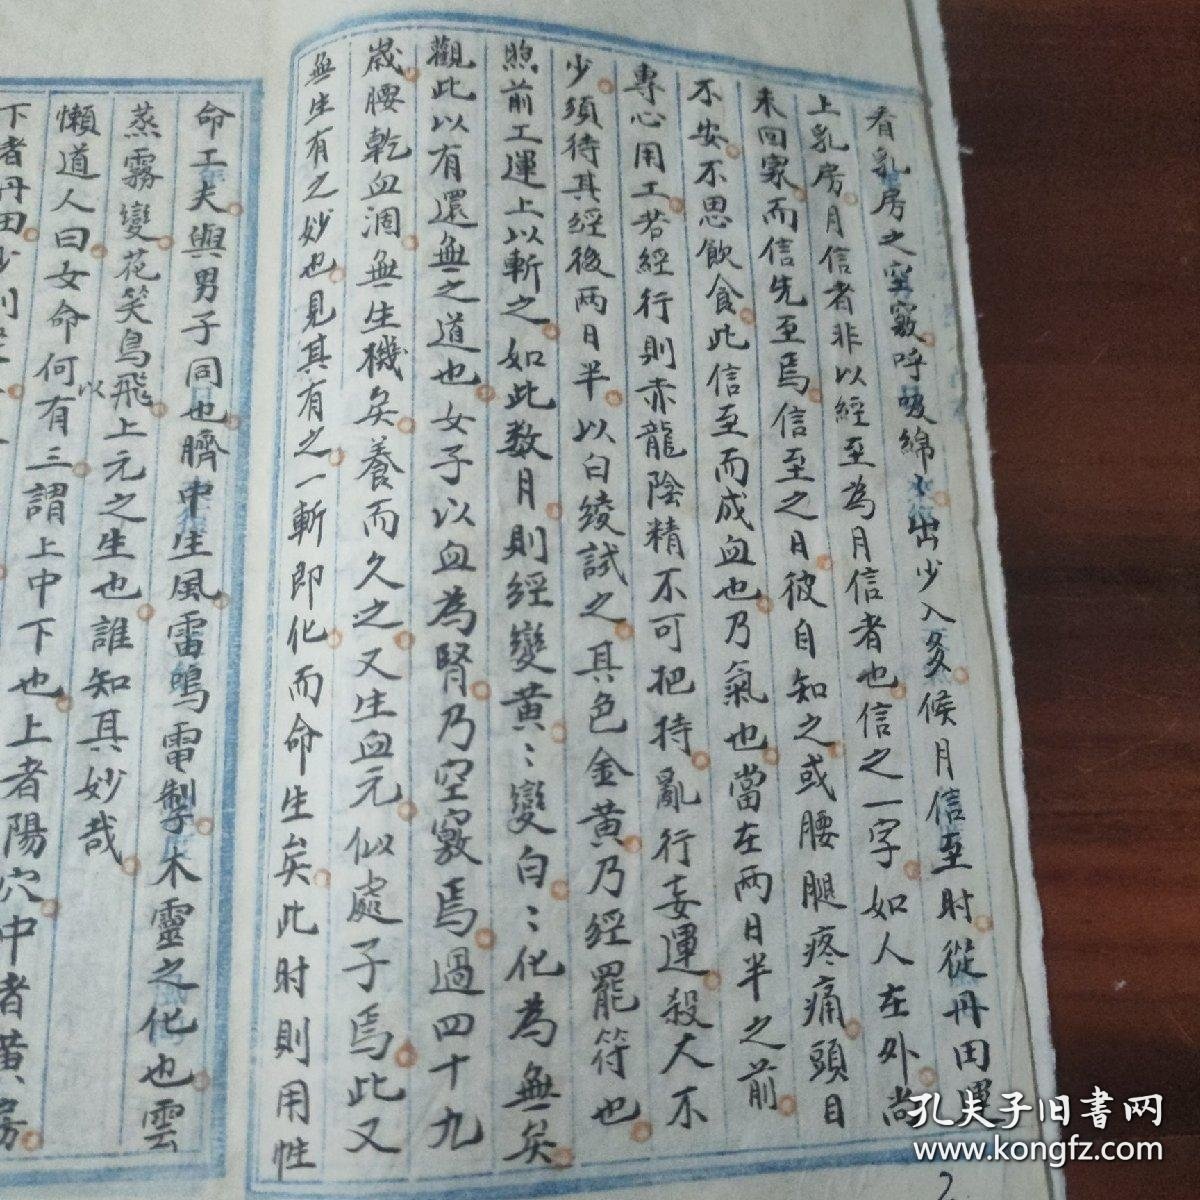 看乳房之空竅呼吸綿々出少入多候月信至时從丹田運
上乳房月信者非以經至為月信者也信之一字如人在外尚
未回家而信先至焉信至之日彼自知之或腰腿疼痛頭目
不安不思飲食此信至而成血也乃氣也當在兩日半之前
專心用工若經行則赤龍陰精不可把持亂行妄運殺人不
少須待其經後兩日半以白綾試之其色金黃乃經罷符也
照前工運上以斬之如此数月則經變黃〻變白〻化為無矣
觀此以有還無之道也女子以血為腎乃空竅焉過四十九
歲腰乾血涸無生機矣養而久之又生血元似處子焉此又
無生有之妙也見其有之一斬即化而命生矣此时則用性
命工夫與男子同也臍中生風雷鳴電掣木靈之化也雲
蒸霧變花笑鳥飛以上元之生也誰知其妙哉
懶道人曰女命何有三謂上中下也上者陽穴中者黃房
下者丹田少則
孔夫子旧書网
www.kongfz.com
2